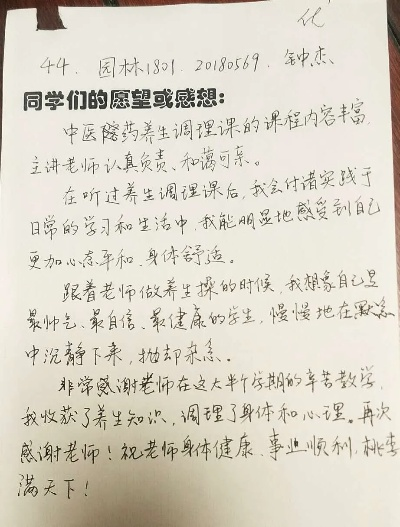 优
44. 园林1801. 20180569. 钟杰
同学们的愿望或感想:
中医医药养生调理课的课程内容丰富,
主讲老师认真负责、和蔼可亲。
在听过养生调理课后,我会付诸实践于
日常的学习和生活中,我能明显地感受到自己
更加心态平和、身体舒适。
跟着老师做养生操的时候,我想象自己是
最帅气、最自信、最健康的学生,慢慢地在默念
中沉静下来,抛却杂念。
非常感谢老师在这大半个学期的辛苦教学,
我收获了养生知识,调理了身体和心理。再次
感谢老师!祝老师身体健康、事业顺利,桃李
满天下!